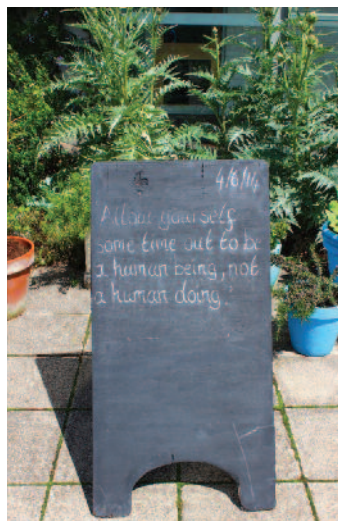 4/6/14
Allow yourself
some time out to be
a human being, not
a human doing.